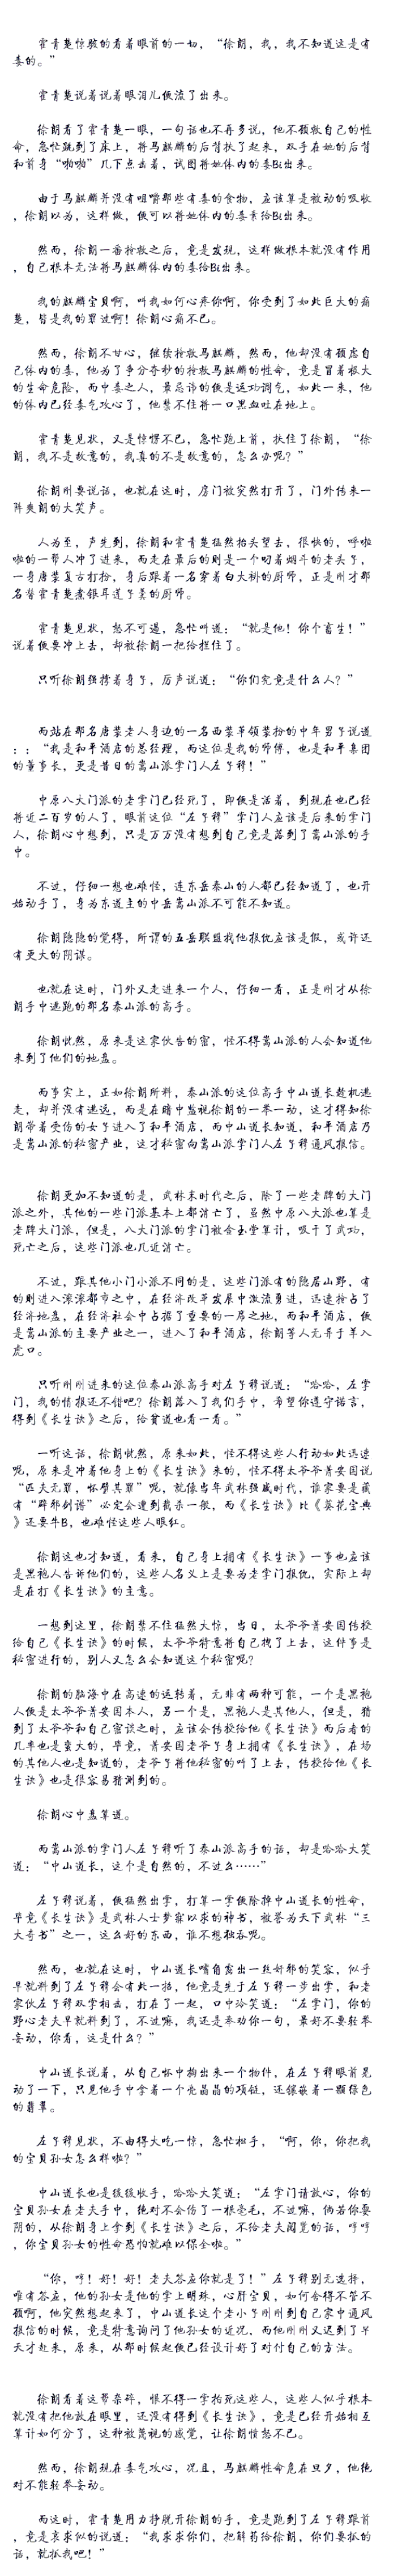 霍青楚惊骇的看着眼前的一切，“徐朗，我，我不知道这是有
毒的。”
霍青楚说着说着眼泪儿便流了出来。
徐朗看了霍青楚一眼，一句话也不再多说，他不顾救自己的性
命，急忙跳到了床上，将马麒麟的后背扶了起来，双手在她的后背
和前身“啪啪”几下点击着，试图将她体内的毒Bi出来。
由于马麒麟并没有咀嚼那些有毒的食物，应该算是被动的吸收
，徐朗以为，这样做，便可以将她体内的毒素给Bi出来。
然而，徐朗一番抢救之后，竟是发现，这样做根本就没有作用
，自己根本无法将马麒麟体内的毒给Bi出来。
我的麒麟宝贝啊，叫我如何心疼你啊，你受到了如此巨大的痛
楚，皆是我的罪过啊！徐朗心痛不已。
然而，徐朗不甘心，继续抢救马麒麟，然而，他却没有顾虑自
己体内的毒，他为了争分夺秒的抢救马麒麟的性命，竟是冒着极大
的生命危险，而中毒之人，最忌讳的便是运功调气，如此一来，他
的体内已经毒气攻心了，他禁不住将一口黑血吐在地上。
霍青楚见状，又是惊愕不已，急忙跑上前，扶住了徐朗，“徐
朗，我不是故意的，我真的不是故意的，怎么办呢？”
徐朗刚要说话，也就在这时，房门被突然打开了，门外传来一
阵爽朗的大笑声。
人为至，声先到，徐朗和霍青楚猛然抬头望去，很快的，呼啦
啦的一帮人冲了进来，而走在最后的则是一个叼着烟斗的老头子，
一身唐装复古打扮，身后跟着一名穿着白大褂的厨师，正是刚才那
名替霍青楚煮银耳莲子羹的厨师。
霍青楚见状，怒不可遏，急忙叫道：“就是他！你个畜生！”
说着便要冲上去，却被徐朗一把给拦住了。
只听徐朗强撑着身子，厉声说道：“你们究竟是什么人？”
而站在那名唐装老人身边的一名西装革领装扮的中年男子说道
：：“我是和平酒店的总经理，而这位是我的师傅，也是和平集团
的董事长，更是昔日的嵩山派掌门人左子穆！”
中原八大门派的老掌门已经死了，即便是活着，到现在也已经
将近二百岁的人了，眼前这位“左子穆”掌门人应该是后来的掌门
人，徐朗心中想到，只是万万没有想到自己竟是落到了嵩山派的手
中。
不过，仔细一想也难怪，连东岳泰山的人都已经知道了，也开
始动手了，身为东道主的中岳嵩山派不可能不知道。
徐朗隐隐的觉得，所谓的五岳联盟找他报仇应该是假，或许还
有更大的阴谋。
也就在这时，门外又走进来一个人，仔细一看，正是刚才从徐
朗手中逃跑的那名泰山派的高手。
徐朗恍然，原来是这家伙告的密，怪不得嵩山派的人会知道他
来到了他们的地盘。
而事实上，正如徐朗所料，泰山派的这位高手中山道长趁机逃
走，却并没有逃远，而是在暗中监视徐朗的一举一动，这才得知徐
朗带着受伤的女子进入了和平酒店，而中山道长知道，和平酒店乃
是嵩山派的秘密产业，这才秘密向嵩山派掌门人左子穆通风报信。
徐朗更加不知道的是，武林末时代之后，除了一些老牌的大门
派之外，其他的一些门派基本上都消亡了，虽然中原八大派也算是
老牌大门派，但是，八大门派的掌门被金玉堂算计，吸干了武功，
死亡之后，这些门派也几近消亡。
不过，跟其他小门小派不同的是，这些门派有的隐居山野，有
的则进入滚滚都市之中，在经济改革发展中激流勇进，迅速抢占了
经济地盘，在经济社会中占据了重要的一席之地，而和平酒店，便
是嵩山派的主要产业之一，进入了和平酒店，徐朗等人无异于羊入
虎口。
只听刚刚进来的这位泰山派高手对左子穆说道：“哈哈，左掌
门，我的情报还不错吧？徐朗落入了我们手中，希望你遵守诺言，
得到《长生诀》之后，给贫道也看一看。”
一听这话，徐朗恍然，原来如此，怪不得这些人行动如此迅速
呢，原来是冲着他身上的《长生诀》来的，怪不得太爷爷菁安因说
“匹夫无罪，怀璧其罪”呢，就像当年武林强盛时代，谁家要是藏
有“辟邪剑谱”必定会遭到截杀一般，而《长生诀》比《葵花宝典
》还要牛B，也难怪这些人眼红。
徐朗这也才知道，看来，自己身上拥有《长生诀》一事也应该
是黑袍人告诉他们的，这些人名义上是要为老掌门报仇，实际上却
是在打《长生诀》的主意。
一想到这里，徐朗禁不住猛然大惊，当日，太爷爷菁安因传授
给自己《长生诀》的时候，太爷爷特意将自己拽了上去，这件事是
秘密进行的，别人又怎么会知道这个秘密呢？
徐朗的脑海中在高速的运转着，无非有两种可能，一个是黑袍
人便是太爷爷菁安因本人，另一个是，黑袍人是其他人，但是，猜
到了太爷爷和自己密谈之时，应该会传授给他《长生诀》而后者的
几率也是蛮大的，毕竟，菁安因老爷子身上拥有《长生诀》，在场
的其他人也是知道的，老爷子将他秘密的叫了上去，传授给他《长
生诀》也是很容易猜测到的。
徐朗心中盘算道。
而嵩山派的掌门人左子穆听了泰山派高手的话，却是哈哈大笑
道：“中山道长，这个是自然的，不过么……”
左子穆说着，便猛然出掌，打算一掌便除掉中山道长的性命，
毕竟《长生诀》是武林人士梦寐以求的神书，被誉为天下武林“三
大奇书”之一，这么好的东西，谁不想独吞呢。
然而，也就在这时，中山道长嘴角露出一丝奸邪的笑容，似乎
早就料到了左子穆会有此一招，他竟是先于左子穆一步出掌，和老
家伙左子穆双掌相击，打在了一起，口中冷笑道：“左掌门，你的
野心老夫早就料到了，不过嘛，我还是奉劝你一句，最好不要轻举
妄动，你看，这是什么？”
中山道长说着，从自己怀中掏出来一个物件，在左子穆眼前晃
动了一下，只见他手中拿着一个亮晶晶的项链，还镶嵌着一颗绿色
的翡翠。
左子穆见状，不由得大吃一惊，急忙松手，“啊，你，你把我
的宝贝孙女怎么样啦？”
中山道长也是缓缓收手，哈哈大笑道：“左掌门请放心，你的
宝贝孙女在老夫手中，绝对不会伤了一根毫毛，不过嘛，倘若你耍
阴的，从徐朗身上拿到《长生诀》之后，不给老夫阅览的话，哼哼
，你宝贝孙女的性命恐怕就难以保全啦。”
“你，哼！好！好！老夫答应你就是了！”左子穆别无选择，
唯有答应，他的孙女是他的掌上明珠，心肝宝贝，如何舍得不管不
顾啊，他突然想起来了，中山道长这个老小子刚刚到自己家中通风
报信的时候，竟是特意询问了他孙女的近况，而他刚刚又迟到了半
天才赶来，原来，从那时候起便已经设计好了对付自己的方法。
徐朗看着这帮杂碎，恨不得一掌拍死这些人，这些人似乎根本
就没有把他放在眼里，还没有得到《长生诀》，竟是已经开始相互
算计如何分了，这种被蔑视的感觉，让徐朗愤怒不已。
然而，徐朗现在毒气攻心，况且，马麒麟性命危在旦夕，他绝
对不能轻举妄动。
而这时，霍青楚用力挣脱开徐朗的手，竟是跑到了左子穆跟前
，竟是哀求似的说道：“我求求你们，把解药给徐朗，你们要抓的
话，就抓我吧！”